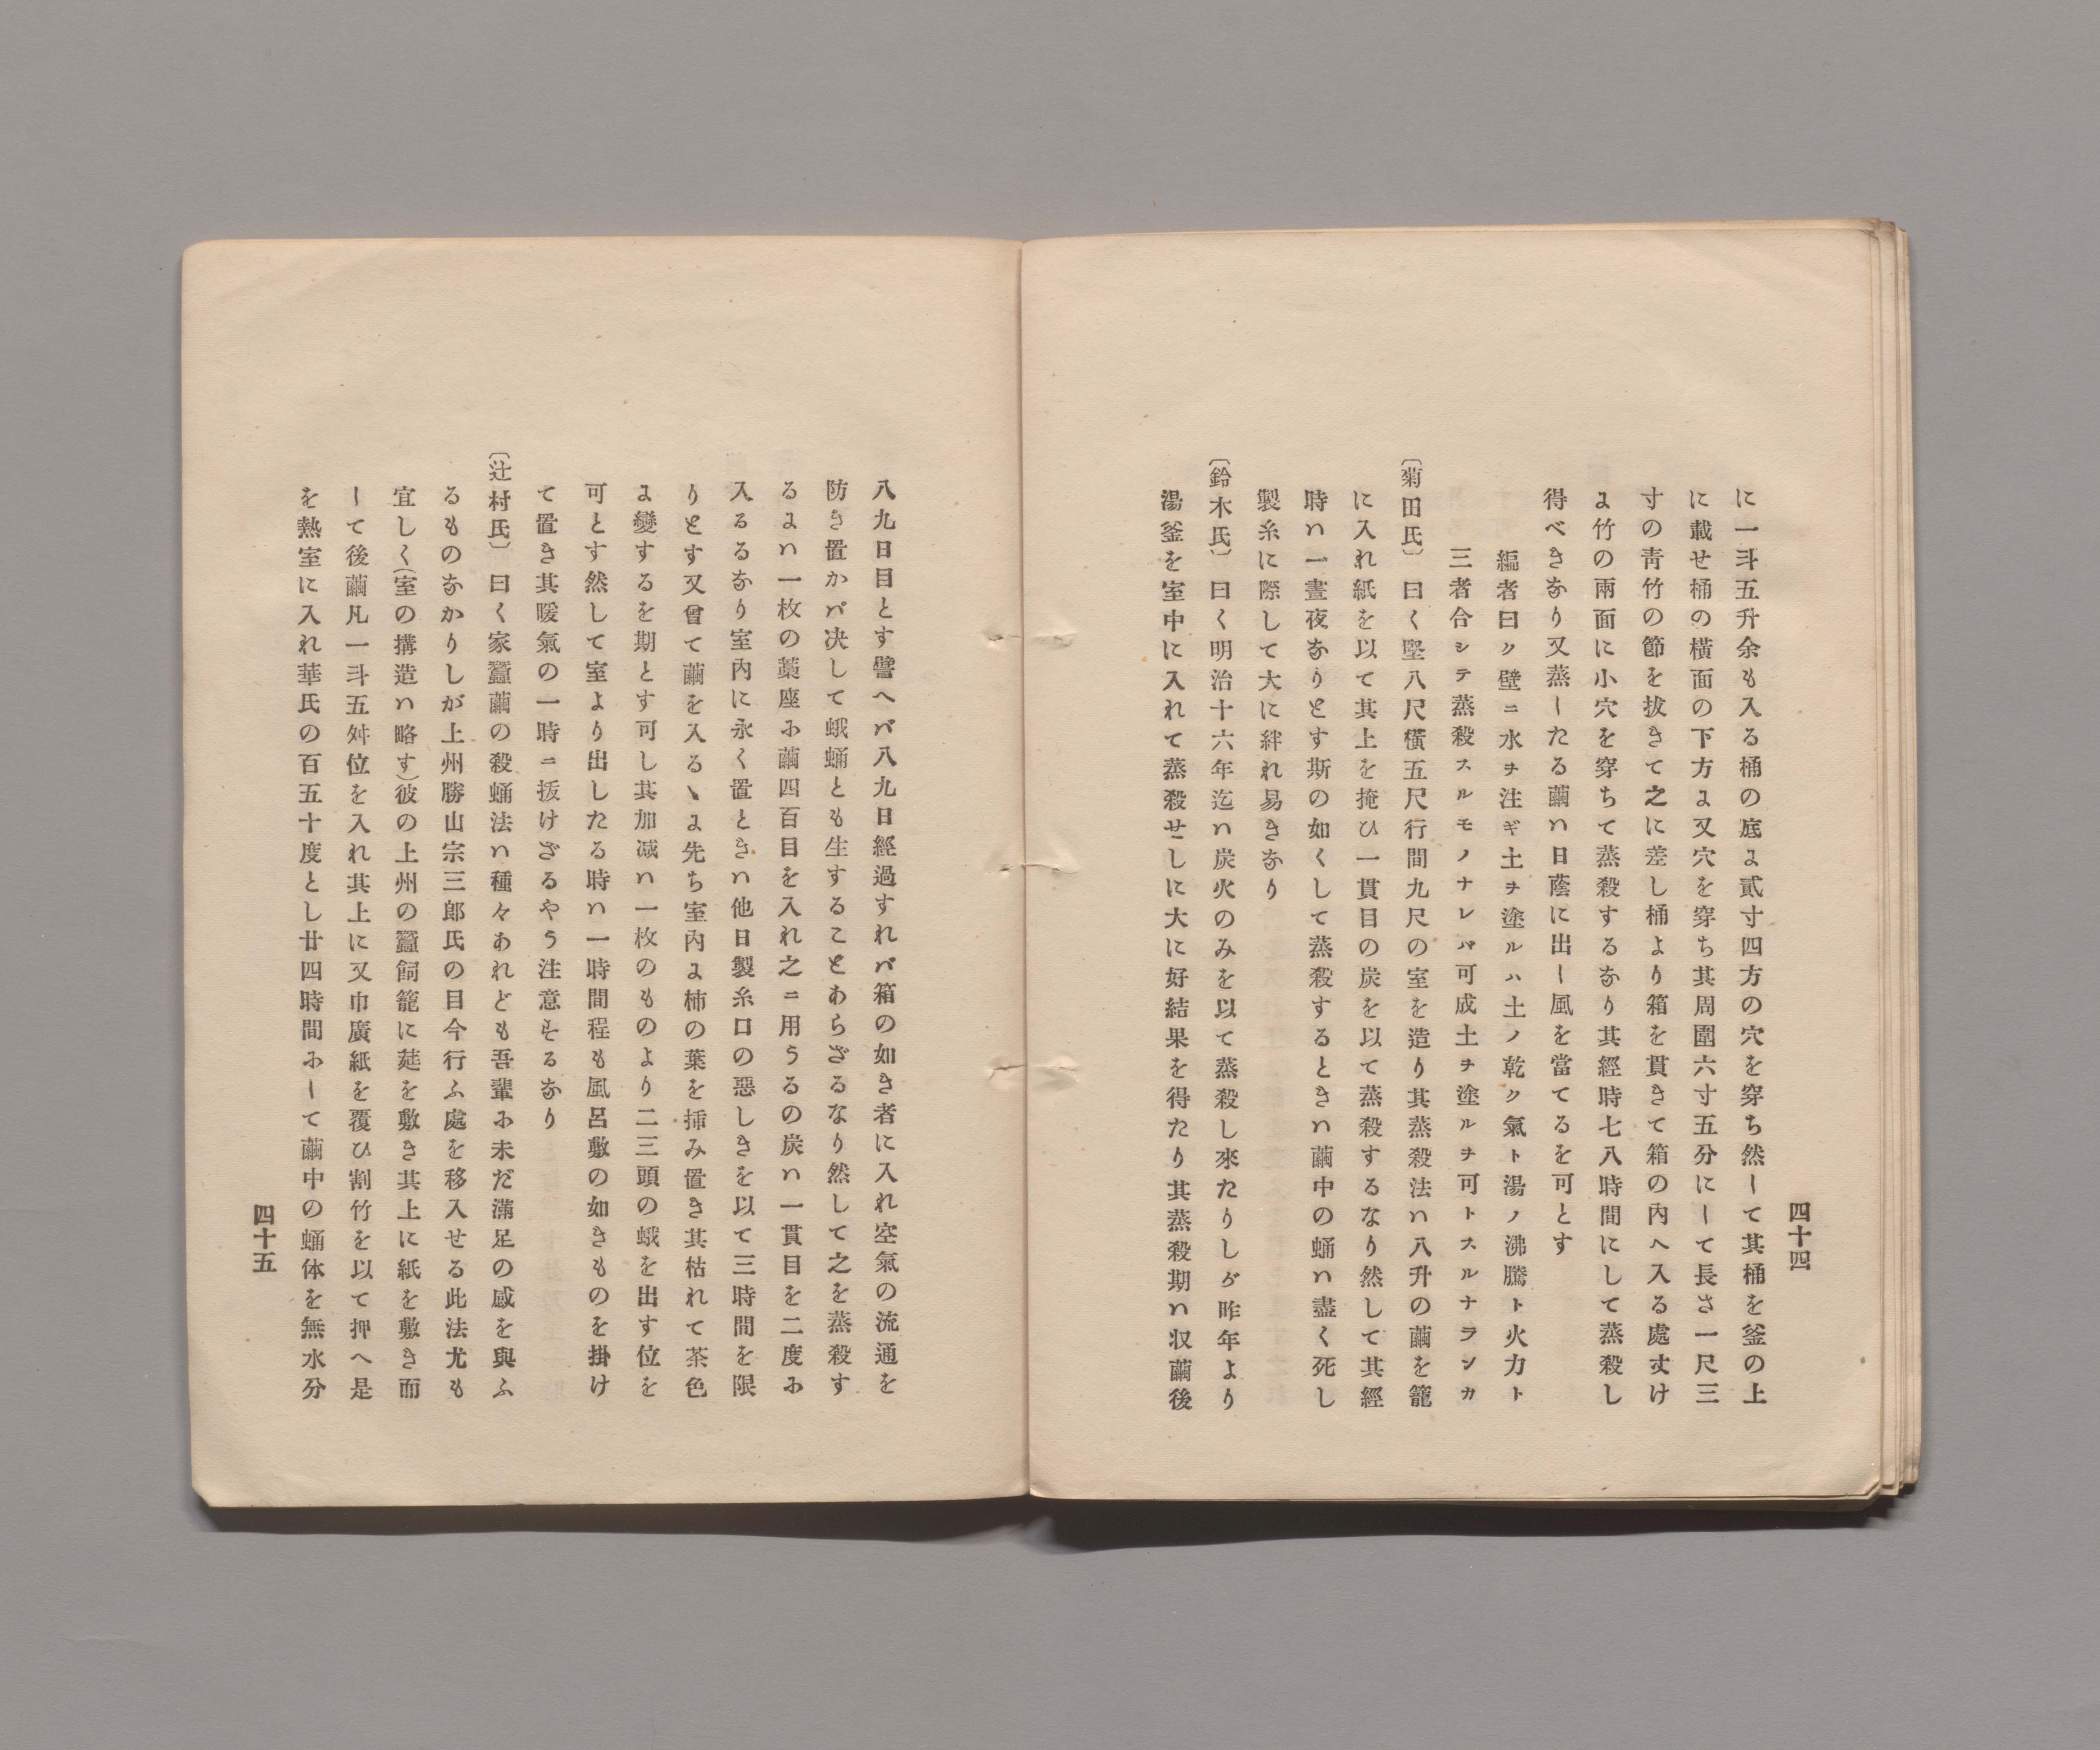 四十四
に一斗五升余も入る桶の底よ貳寸四方の穴を穿ち然ーて其桶を釜の上
に載せ桶の横面の下方よ又穴を穿ち其周圍六寸五分にーて長さ一尺三
寸の靑竹の節を拔きて之に差し桶より箱を貫きて箱の內へ入る處丈け
よ竹の兩面に小穴を穿ちて蒸殺するなり其經時七八時間にして蒸殺し
得べきなり又蒸ーたる繭ハ日蔭に出ー風を當てるを可とす
編者曰ク壁ニ水チ注ギ土ヲ塗ルハ土ノ乾ク氣ト湯ノ沸騰ト火力ト
三者合シテ蒸殺スルモノナレバ可成土チ塗ルチ可トスルナランカ
〔菊田氏〕曰く堅八尺橫五尺行間九尺の室を造り其蒸殺法ハ八升の繭を籠
に入れ紙を以て其上を掩ひ一貫目の炭を以て蒸殺するなり然して其經
時ハ一晝夜なりとす斯の如くして蒸殺するときハ繭中の蛹ハ盡く死し
製糸に際して大に絆れ易きなり
〔鈴木氏〕曰く明治十六年迄ハ炭火のみを以て蒸殺し來たりしが昨年より
湯釜を室中に入れて蒸殺せしに大に好結果を得たり其蒸殺期ハ収繭後
八九日目とす譬へバ八九日經過すれバ箱の如き者に入れ空氣の流通を
防き置かバ决して蛾蛹とも生することあらざるなり然して之を蒸殺す
るよハ一枚の藁座ふ繭四百目を入れ之ニ用うるの炭ハ一貫目を二度ふ
入るるなり室內に永く置ときハ他日製糸口の惡しきを以て三時間を限
りとす又曾て繭を入るゝよ先ち室內よ柿の葉を揷み置き其枯れて茶色
よ變するを期とす可し其加减ハ一枚のものより二三頭の蛾を出す位を
可とす然して室より出したる時ハ一時間程も風呂敷の如きものを掛け
て置き其暖氣の一時ニ拔けざるやう注意をるなり
〔辻村氏〕曰く家蠶繭の殺蛹法ハ種々あれども吾輩ふ未だ滿足の感を與ふ
るものなかりしが上州勝山宗三郎氏の目今行ふ處を移入せる此法尤も
宜しく(室の搆造ハ略す)彼の上州の蠶飼籠に莚を敷き其上に紙を敷き而
ーて後繭凡一斗五舛位を入れ其上に又巾廣紙を覆ひ割竹を以て押へ是
を熱室に入れ華氏の百五十度とし廿四時間ふーて繭中の蛹体を無水分
四十五